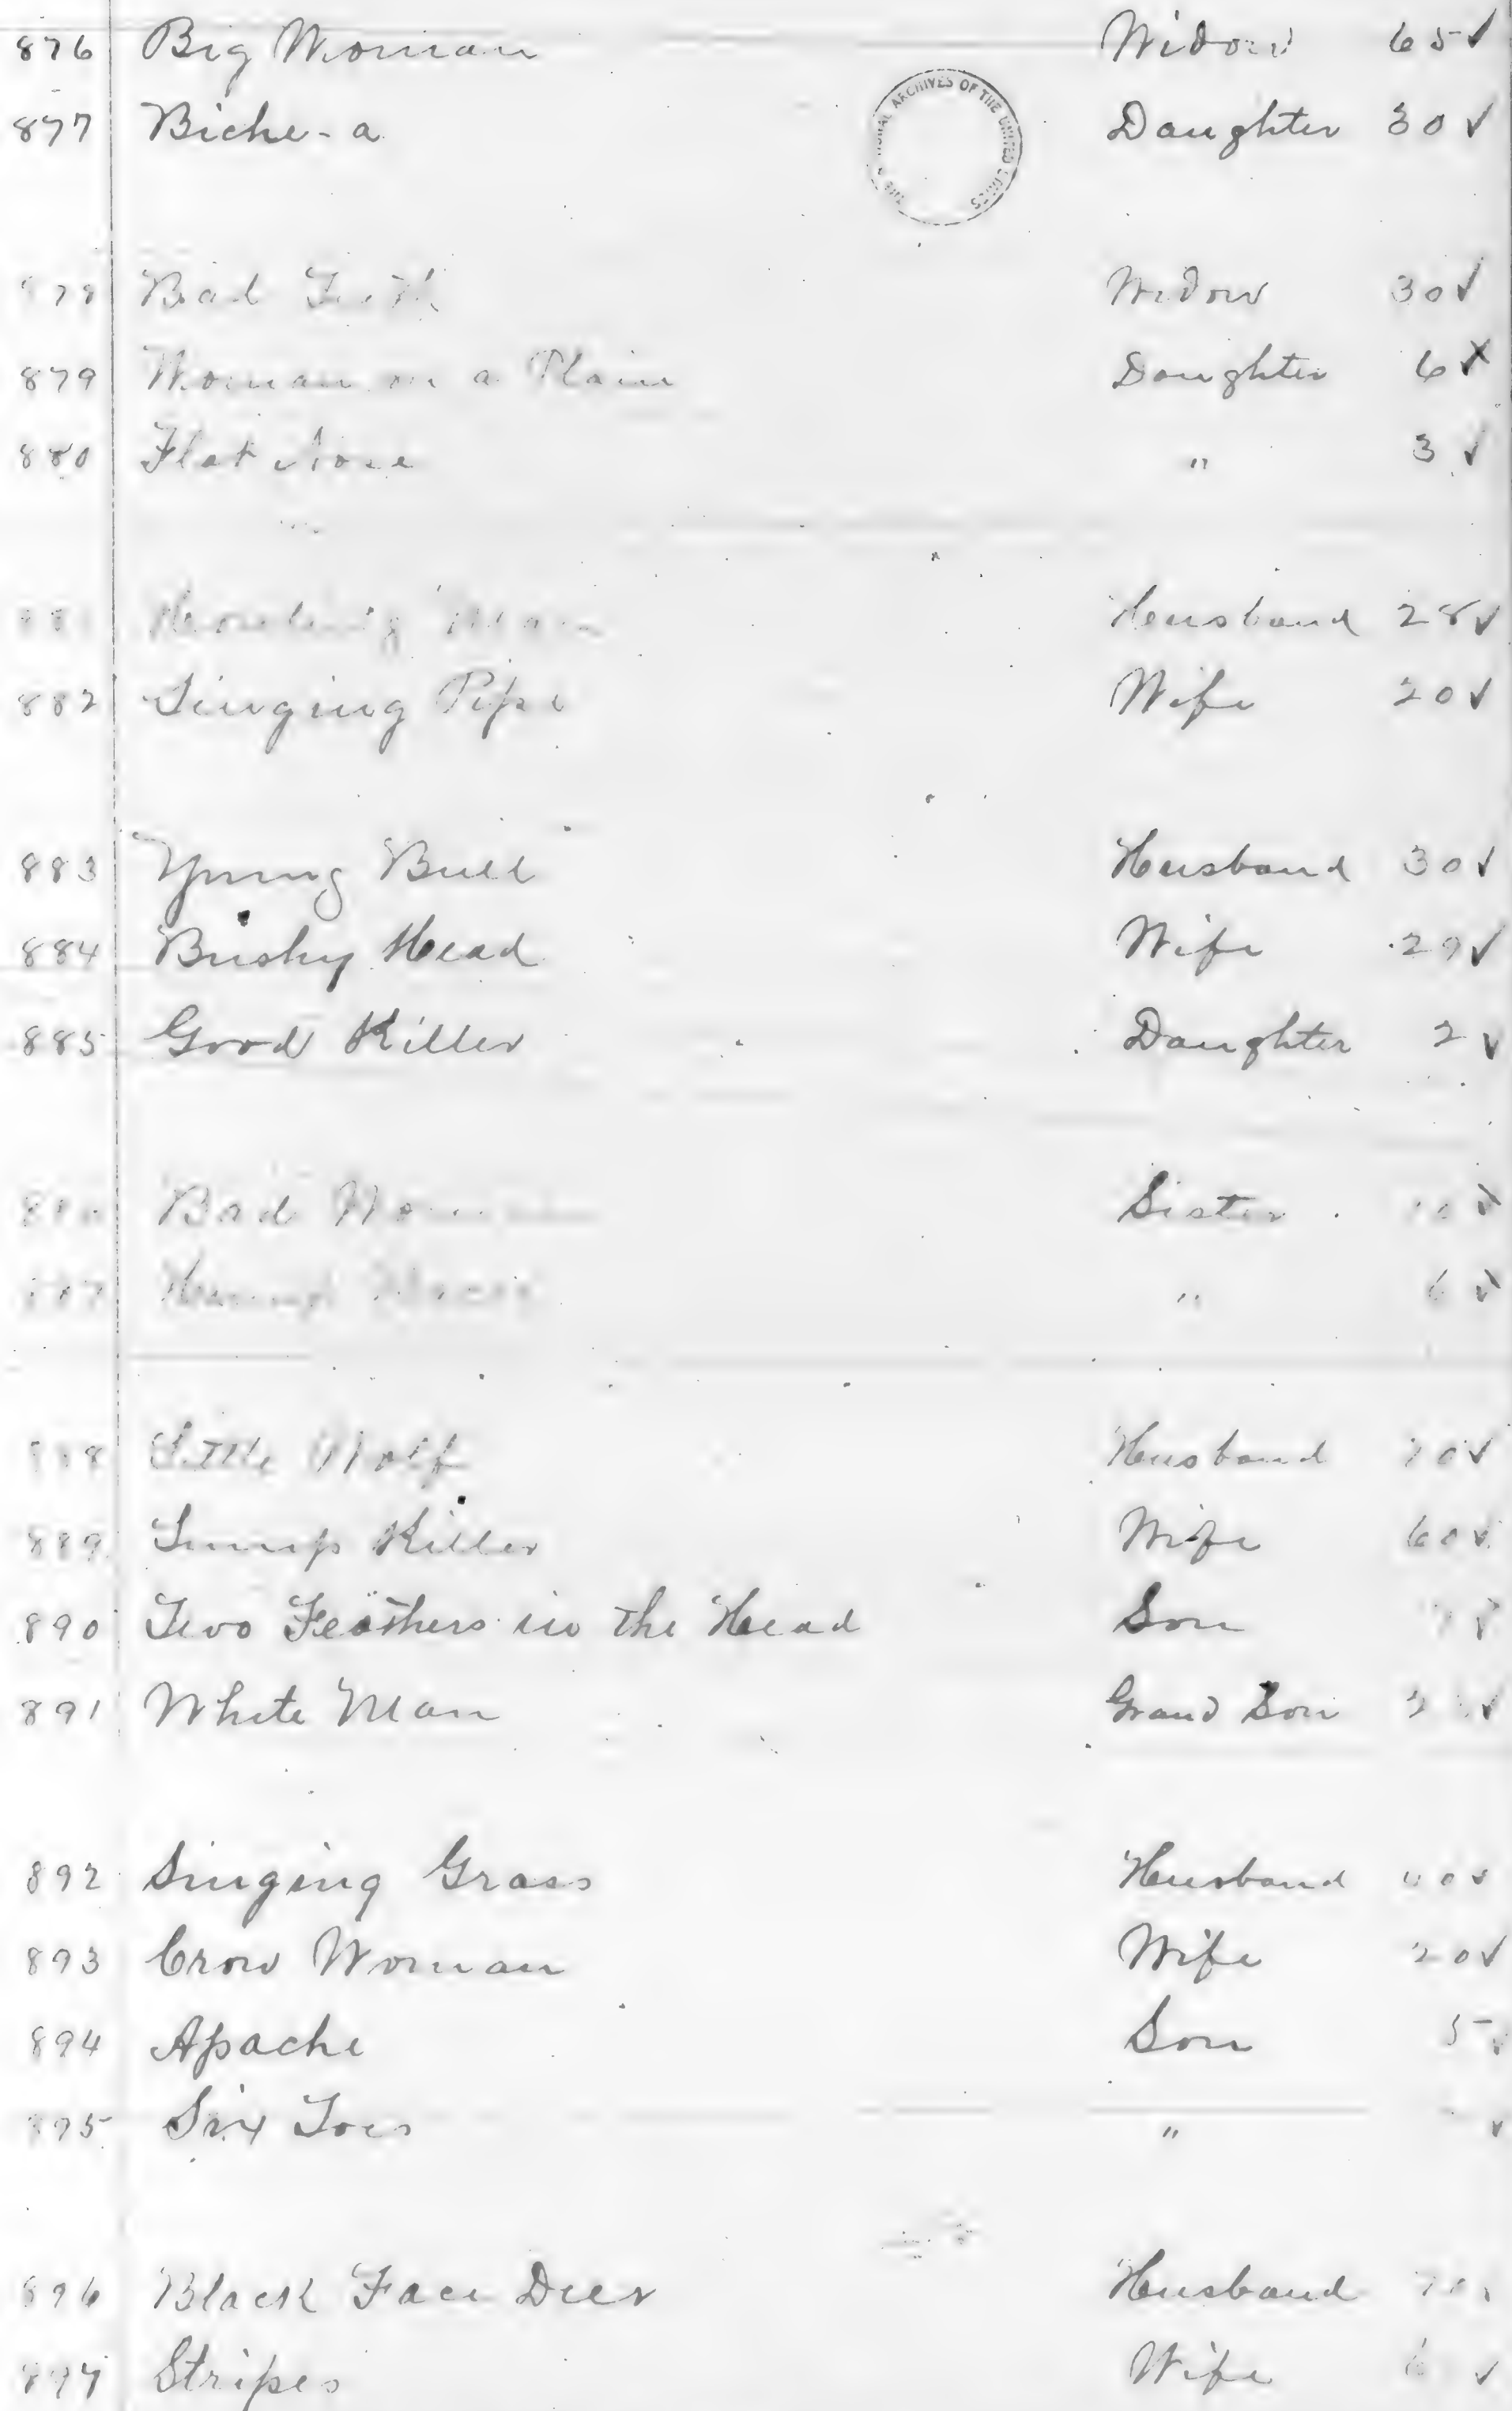 876 Big Woman Widow 65 ✓
877 Biche-a Daughter 30 ✓
THE NATIONAL ARCHIVES OF THE UNITED STATES
878 Bad Widow 30 ✓
879 Woman on a Plain Daughter 6 X
880 Flat Nose " 3 ✓
881 Howling Man Husband 28 ✓
882 Singing Pipe Wife 20 ✓
883 Young Bull Husband 30 ✓
884 Bushy Head Wife 29 ✓
885 Good Killer Daughter 2 ✓
886 Bad Woman Sister
887 " 6
888 Little Wolf Husband 70 ✓
889 Lump Killer Wife 60 ✓
890 Two Feathers in the Head Son
891 White Man Grand Son ✓
892 Singing Grass Husband 40 ✓
893 Crow Woman Wife 20 ✓
894 Apache Son 5 ✓
895 Six Toes " ✓
896 Black Face Deer Husband
897 Stripes Wife ✓